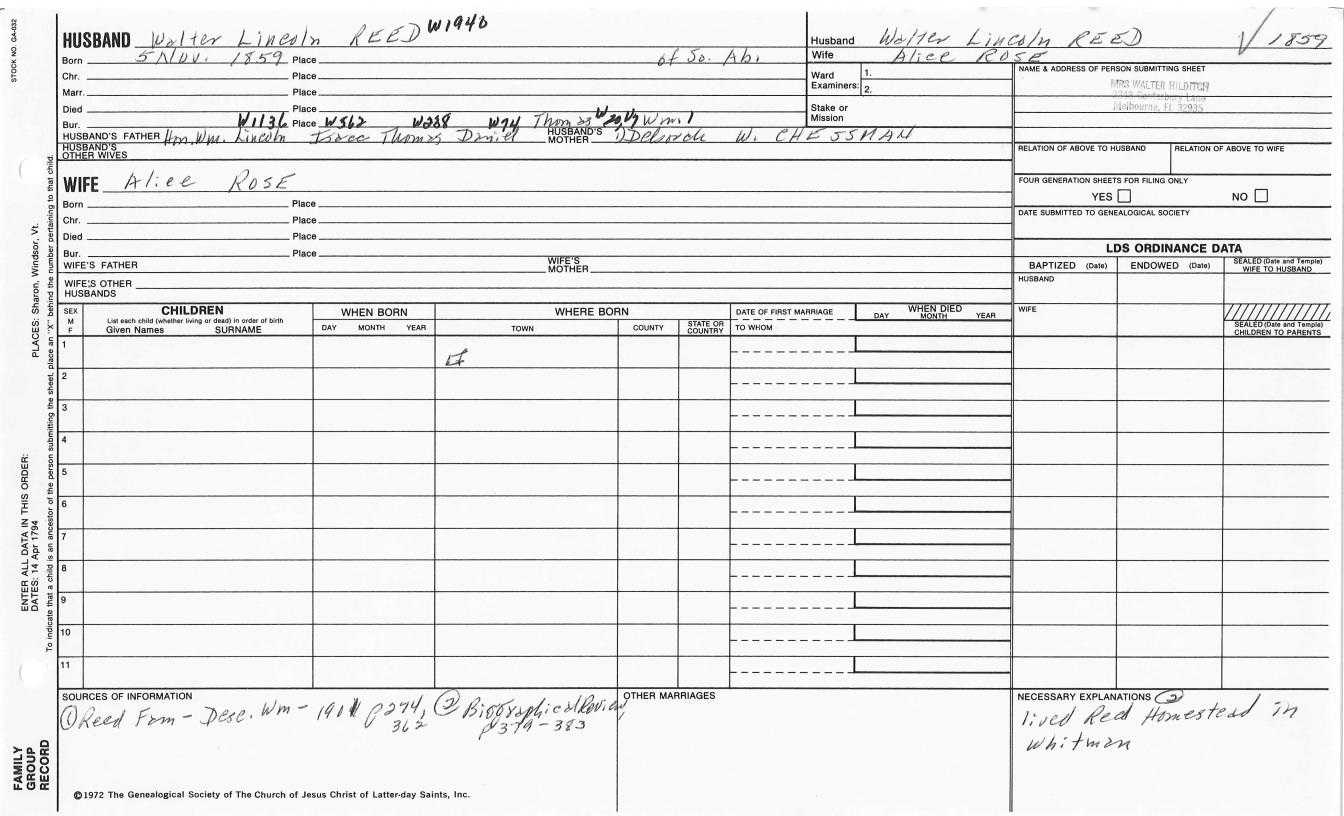 STOCK NO. GA-032
HUSBAND Walter Lincoln REED W1940
Born 5 Nov. 1859 Place of So. Ab.
Chr. Place
Marr. Place
Died Place
Bur. Place
W1136 W562 W238 W74 Thomas Wm. 1
HUSBAND'S FATHER Hon. Wm. Lincoln Isaac Thomas Daniel HUSBAND'S MOTHER Deborah W. CHESSMAN
HUSBAND'S OTHER WIVES
WIFE Alice ROSE
Born Place
Chr. Place
Died Place
Bur. Place
WIFE'S FATHER WIFE'S MOTHER
WIFE'S OTHER HUSBANDS
Husband Walter Lincoln REED √ 1859
Wife Alice ROSE
Ward Examiners: 1.
2.
Stake or Mission
NAME & ADDRESS OF PERSON SUBMITTING SHEET
MRS WALTER HILDITCH
Melbourne, FL 32935
RELATION OF ABOVE TO HUSBAND RELATION OF ABOVE TO WIFE
FOUR GENERATION SHEETS FOR FILING ONLY
YES NO
DATE SUBMITTED TO GENEALOGICAL SOCIETY
LDS ORDINANCE DATA
BAPTIZED (Date) ENDOWED (Date) SEALED (Date and Temple) WIFE TO HUSBAND
HUSBAND
WIFE
SEALED (Date and Temple) CHILDREN TO PARENTS
SEX M F
CHILDREN
List each child (whether living or dead) in order of birth
Given Names SURNAME
WHEN BORN
DAY MONTH YEAR
WHERE BORN
TOWN COUNTY STATE OR COUNTRY
DATE OF FIRST MARRIAGE
TO WHOM
WHEN DIED
DAY MONTH YEAR
1
2
3
4
5
6
7
8
9
10
11
SOURCES OF INFORMATION
① Reed Fam - Desc. Wm - 1901 p274, ② Biographical Review,
362 p379-383
OTHER MARRIAGES
NECESSARY EXPLANATIONS ②
lived Reed Homestead in
Whitman
©1972 The Genealogical Society of The Church of Jesus Christ of Latter-day Saints, Inc.
PLACES: Sharon, Windsor, Vt.
To indicate that a child is an ancestor of the person submitting the sheet, place an "X" behind the number pertaining to that child.
ENTER ALL DATA IN THIS ORDER:
DATES: 14 Apr 1794
FAMILY
GROUP
RECORD